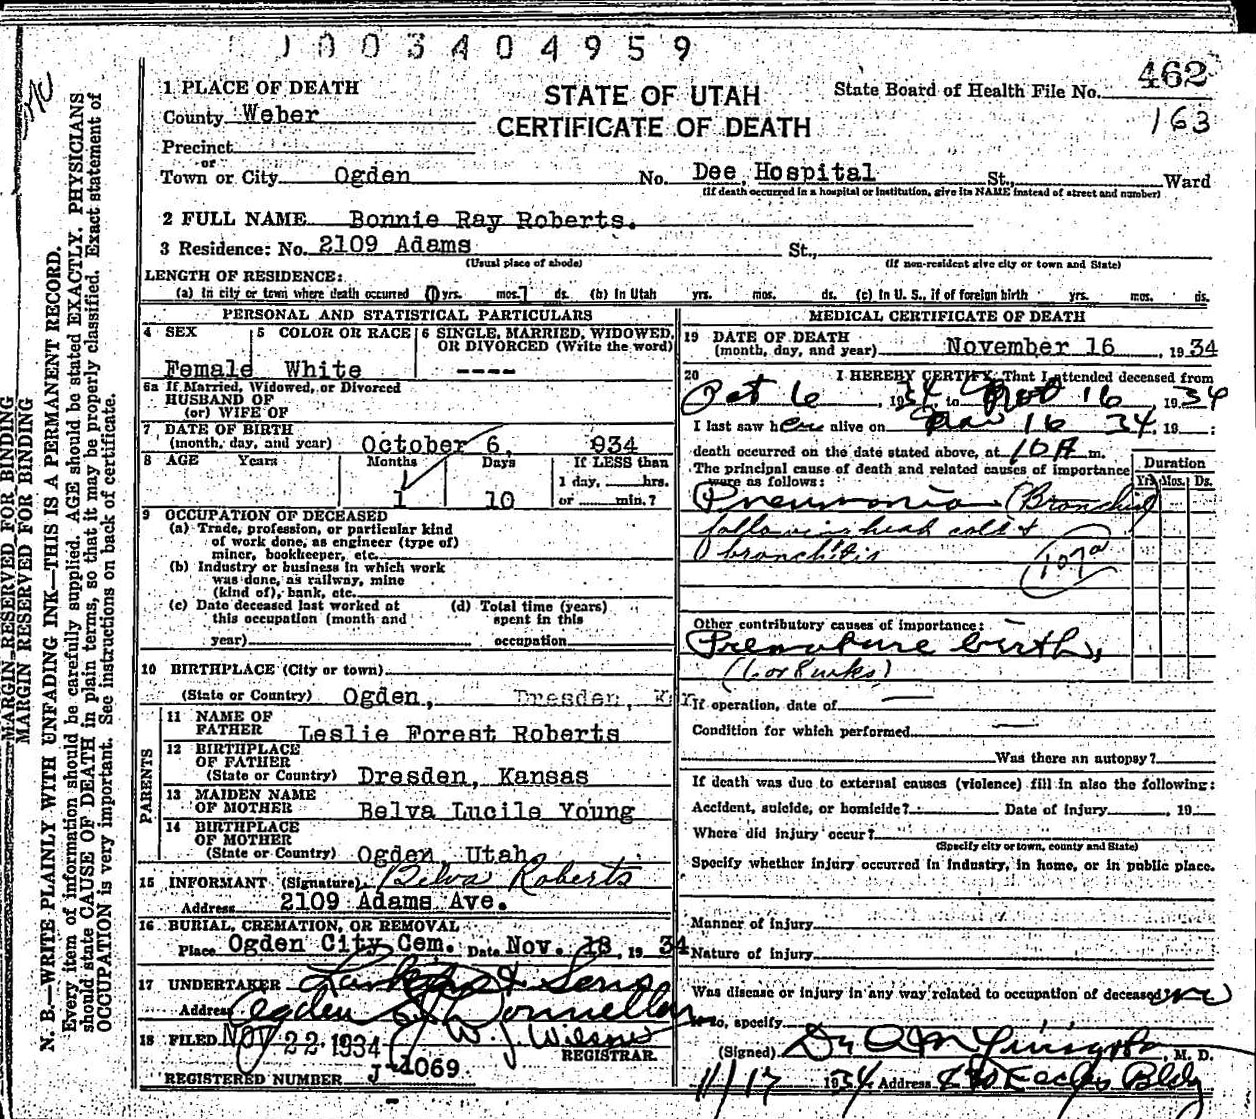 1003404959
462
163
1 PLACE OF DEATH
STATE OF UTAH
State Board of Health File No.
County Weber
CERTIFICATE OF DEATH
Precinct
or
Town or City Ogden No. Dee, Hospital St., Ward
(If death occurred in a hospital or institution, give its NAME instead of street and number)
2 FULL NAME Bonnie Ray Roberts.
3 Residence: No. 2109 Adams St.,
(Usual place of abode) (If non-resident give city or town and State)
LENGTH OF RESIDENCE:
(a) In city or town where death occurred yrs. mos. ds. (b) In Utah yrs. mos. ds. (c) In U. S., if of foreign birth yrs. mos. ds.
PERSONAL AND STATISTICAL PARTICULARS
4 SEX 5 COLOR OR RACE 6 SINGLE, MARRIED, WIDOWED,
OR DIVORCED (Write the word)
Female White ----
6a If Married, Widowed, or Divorced
HUSBAND OF
(or) WIFE OF
7 DATE OF BIRTH
(month, day, and year) October 6, 934
8 AGE Years Months Days If LESS than
1 day, hrs.
1 10 or min.?
9 OCCUPATION OF DECEASED
(a) Trade, profession, or particular kind
of work done, as engineer (type of)
miner, bookkeeper, etc.
(b) Industry or business in which work
was done, as railway, mine
(kind of), bank, etc.
(c) Date deceased last worked at (d) Total time (years)
this occupation (month and spent in this
year) occupation
10 BIRTHPLACE (City or town)
(State or Country) Ogden, Dresden, K
PARENTS
11 NAME OF
FATHER Leslie Forest Roberts
12 BIRTHPLACE
OF FATHER
(State or Country) Dresden, Kansas
13 MAIDEN NAME
OF MOTHER Belva Lucile Young
14 BIRTHPLACE
OF MOTHER
(State or Country) Ogden, Utah
15 INFORMANT (Signature) Belva Roberts
Address 2109 Adams Ave.
16 BURIAL, CREMATION, OR REMOVAL
Place Ogden City Cem. Date Nov. 18, 19 34
17 UNDERTAKER Larkin & Sons
Address Ogden
18 FILED NOV 22 1934 W. J. Wilson
REGISTRAR.
REGISTERED NUMBER J-1069
MEDICAL CERTIFICATE OF DEATH
19 DATE OF DEATH
(month, day, and year) November 16, 19 34
20 I HEREBY CERTIFY, That I attended deceased from
Oct 6, 1934 to Nov 16 19 34
I last saw her alive on Nov 16 34, 19 :
death occurred on the date stated above, at 10 A m.
The principal cause of death and related causes of importance
were as follows:
Duration
Yrs. Mos. Ds.
Pneumonia (Bronchial)
following head cold &
bronchitis
107a
Other contributory causes of importance:
Premature birth,
If operation, date of
Condition for which performed
Was there an autopsy?
If death was due to external causes (violence) fill in also the following:
Accident, suicide, or homicide? Date of injury , 19
Where did injury occur?
(Specify city or town, county and State)
Specify whether injury occurred in industry, in home, or in public place.
Manner of injury
Nature of injury
Was disease or injury in any way related to occupation of deceased no
If so, specify
(Signed) Dr , M. D.
11/17 1934 Address Eccles Bldg
MARGIN RESERVED FOR BINDING
MARGIN RESERVED FOR BINDING
N. B.—WRITE PLAINLY WITH UNFADING INK—THIS IS A PERMANENT RECORD.
Every item of information should be carefully supplied. AGE should be stated EXACTLY. PHYSICIANS
should state CAUSE OF DEATH in plain terms, so that it may be properly classified. Exact statement of
OCCUPATION is very important. See instructions on back of certificate.